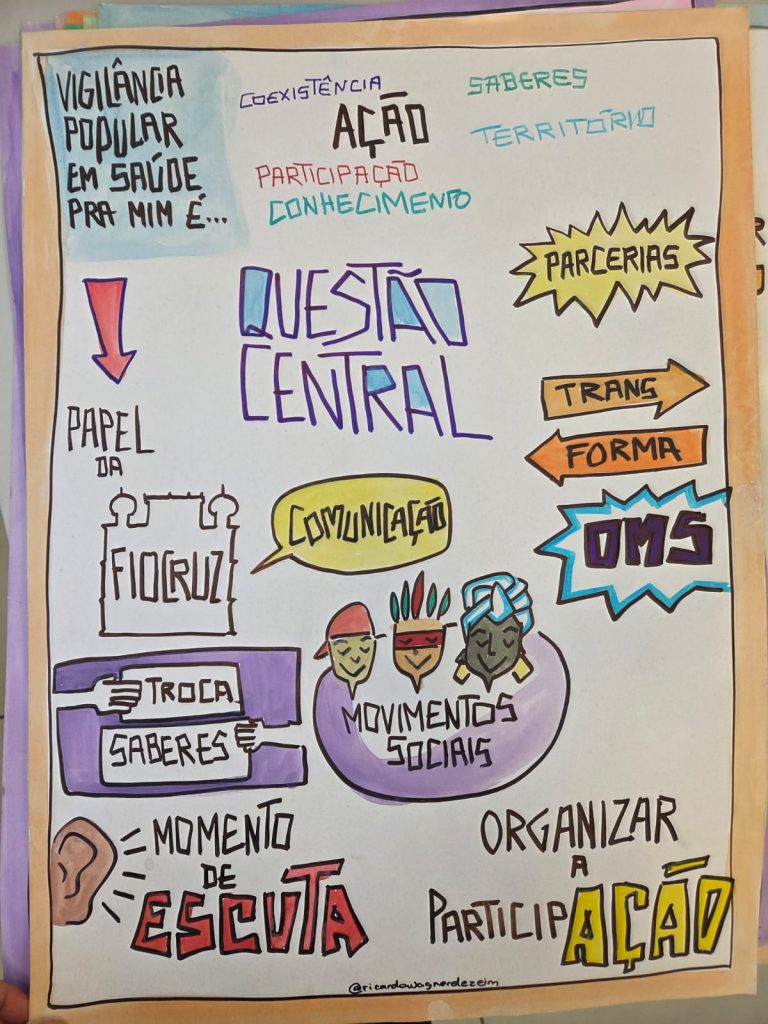 VIGILÂNCIA
POPULAR
EM SAÚDE
PRA MIM É...
COEXISTÊNCIA
AÇÃO
PARTICIPAÇÃO
CONHECIMENTO
SABERES
TERRITÓRIO
QUESTÃO
CENTRAL
PARCERIAS
TRANS
FORMA
OMS
PAPEL
DA
FIOCRUZ
COMUNICAÇÃO
TROCA
SABERES
MOVIMENTOS
SOCIAIS
MOMENTO
DE
ESCUTA
ORGANIZAR
A
PARTICIPAÇÃO
@ricardowagnerdezeim